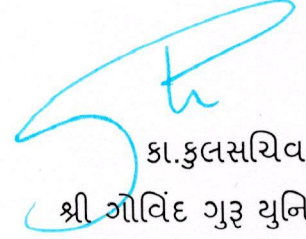 કા.કુલસચિવ
શ્રી ગોવિંદ ગુરૂ યુનિ